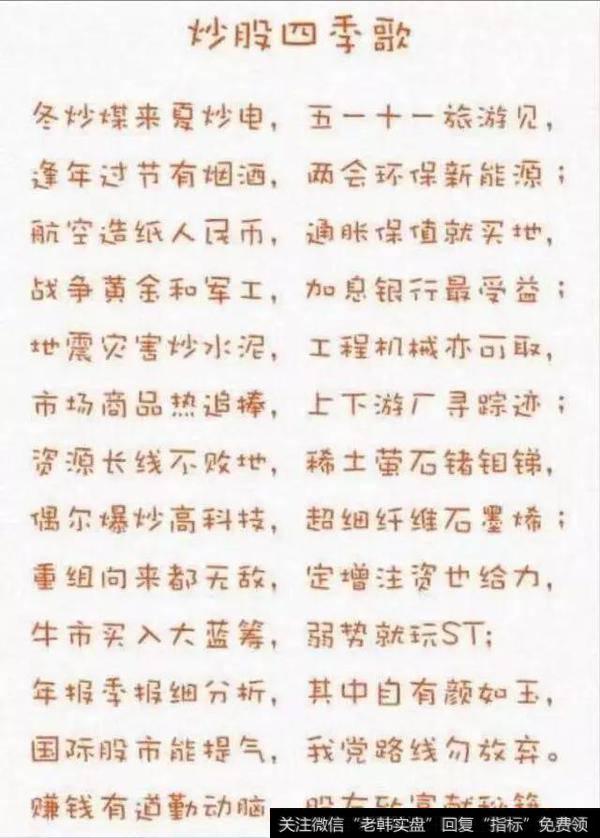 炒股四季歌
冬炒煤来夏炒电，五一十一旅游见，
逢年过节有烟酒，两会环保新能源；
航空造纸人民币，通胀保值就买地，
战争黄金和军工，加息银行最受益；
地震灾害炒水泥，工程机械亦可取，
市场商品热追捧，上下游厂寻踪迹；
资源长线不败地，稀土萤石锗钼锑，
偶尔爆炒高科技，超细纤维石墨烯；
重组向来都无敌，定增注资也给力，
牛市买入大蓝筹，弱势就玩ST；
年报季报细分析，其中自有颜如玉，
国际股市能提气，我党路线勿放弃。
赚钱有道勤动脑
关注微信“老韩实盘”回复“指标”免费领